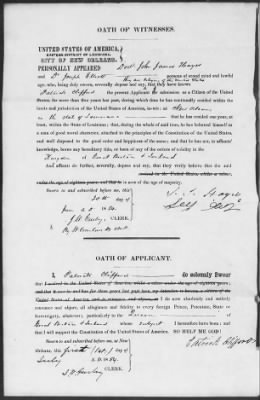 OATH OF WITNESSES.
UNITED STATES OF AMERICA,
EASTERN DISTRICT OF LOUISIANA,
CITY OF NEW ORLEANS.
PERSONALLY APPEARED Doct John James Hayes
and Dr Joseph persons of sound mind and lawful
age, who, being duly sworn, severally depose and say, that they have known
Patrick Clifford
the present Applicant for admission as a Citizen of the United States,
for more than five years last past, during which time he has continually resided within the
limits and jurisdiction of the United States of America, to wit: at New Orleans
in the state of Louisiana that he has resided one year, at
least, within the State of Louisiana; that, during the whole of said time, he has behaved himself as
a man of good moral character, attached to the principles of the Constitution of the United States,
and well disposed to the good order and happiness of the same; and that he has not, to affiants'
knowledge, borne any hereditary title, or been of any of the orders of nobility in the
Kingdom of Great Britain & Ireland
And affiants do further, severally, depose and say, that they verily believe that the said
resided in the United States while a minor,
under the age of eighteen years and is now of the age of majority.
Sworn to and subscribed before me, this
30th day of
June A D 18
CLERK.
OATH OF APPLICANT.
I, Patrick Clifford do solemnly Swear
that I resided in the United States while a minor under the age of eighteen years;
United States of America, and to renounce. I do now absolutely and entirely
renounce and abjure, all allegiance and fidelity to every foreign Prince, Potentate, State or
Sovereignty whatever, and particularly to the Queen of
Great Britain & Ireland whose subject I heretofore have been; and
that I will support the Constitution of the United States. SO HELP ME GOD!
Sworn to and subscribed before me, at New
Orleans, this first (1st) day of
Patrick Clifford
July A. D. 18
CLERK.